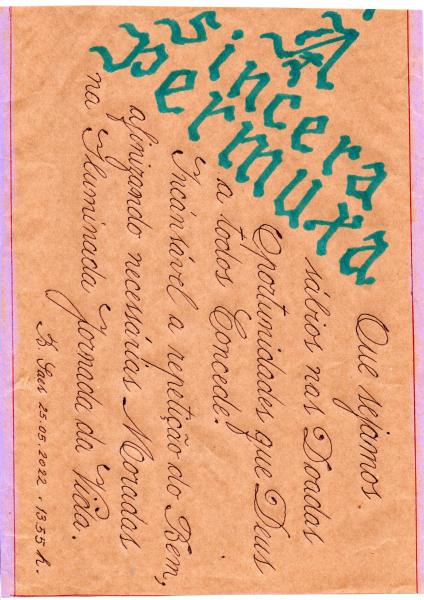 A
sincera
permuta
Que sejamos
sábios nas Doadas
Oportunidades que Deus
a todos Concede.
Incansável a repetição do Bem,
afinizando necessárias Moradas
na Iluminada Jornada da Vida.
25.05.2022 - 13:55 h.